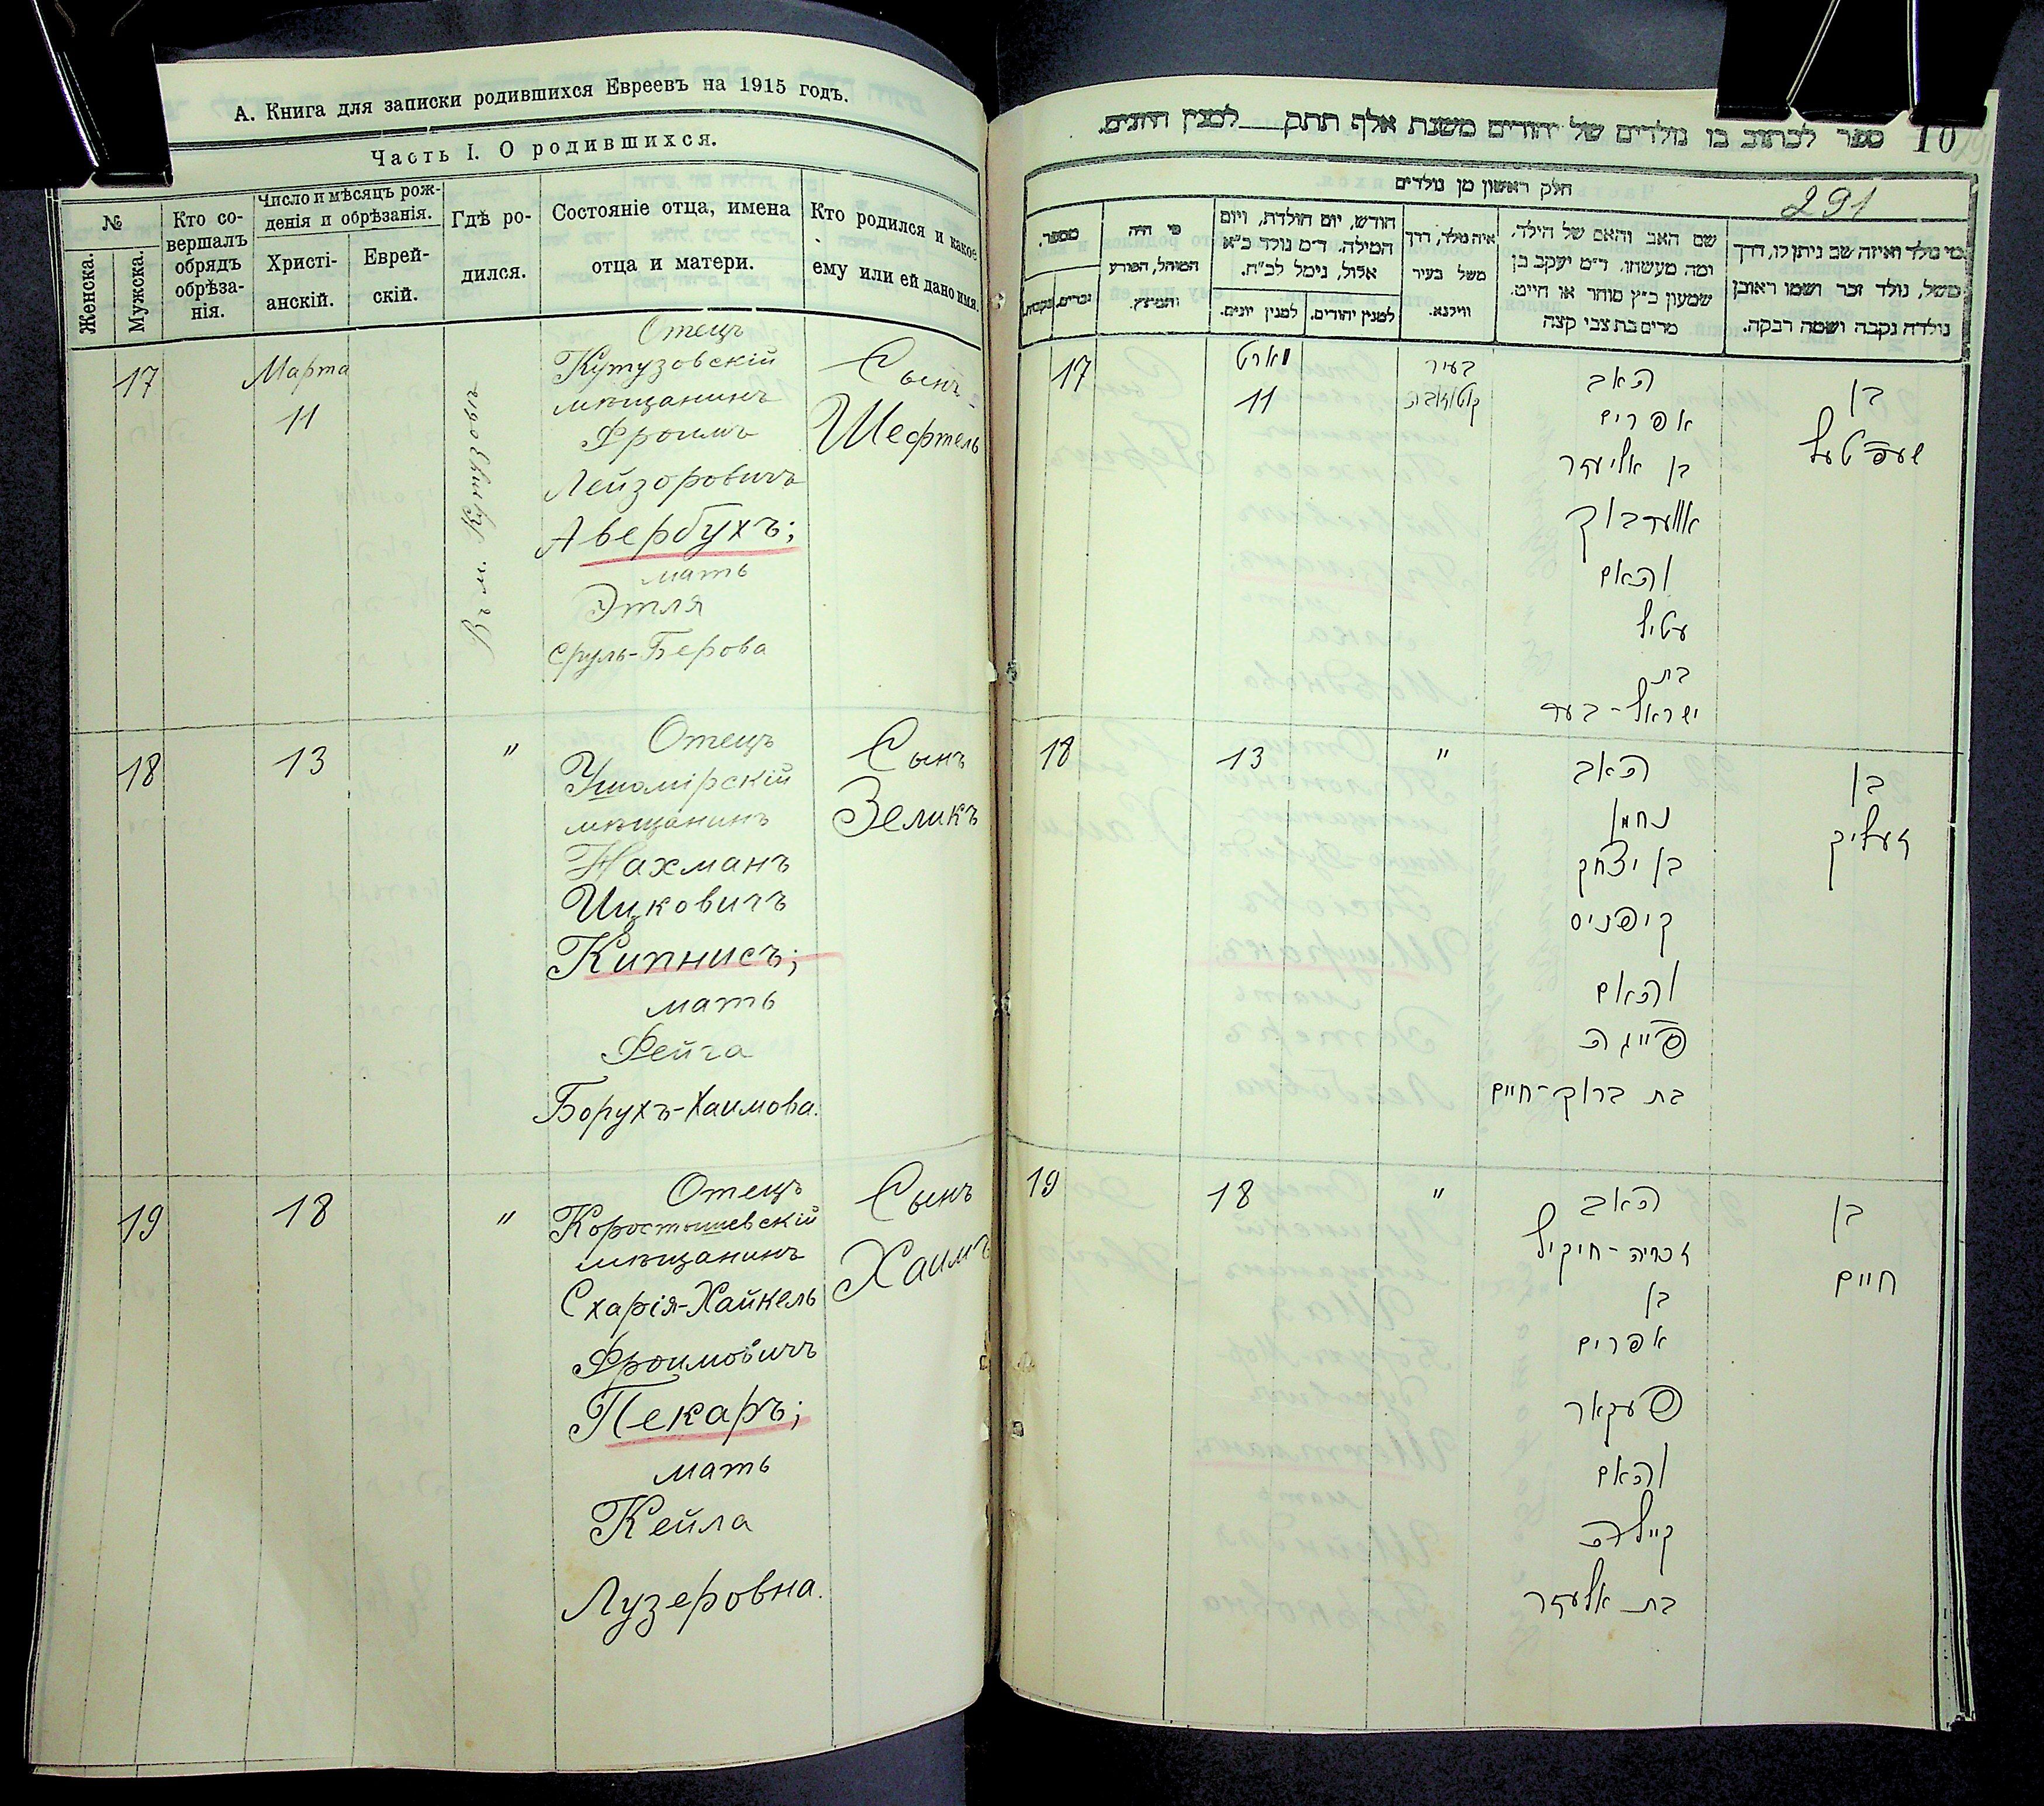 А. Книга для записки родившихся Евреевъ на 1915 годъ.
Часть I. О родившихся.
№
Женска.
Мужска.
Кто со-
вершалъ
обрядъ
обрѣза-
нія.
Число и мѣсяцъ рож-
денія и обрѣзанія.
Христі-
анскій.
Еврей-
скій.
Гдѣ ро-
дился.
Состояніе отца, имена
отца и матери.
Кто родился и какое
ему или ей дано имя.
17
Марта
11
Въ м. Кутузовъ
Отецъ
Кутузовскій
мѣщанинъ
Фроимъ
Лейзоровичъ
Авербухъ;
мать
Этля
Сруль-Берова
Сынъ
Шефтель
18
13
"
Отецъ
Ушомірскій
мѣщанинъ
Нахманъ
Ицковичъ
Кипнисъ;
мать
Фейга
Борухъ-Хаимова.
Сынъ
Зеликъ
19
18
"
Отецъ
Коростышевскій
мѣщанинъ
Схарія-Хайкель
Фроимовичъ
Пекаръ;
мать
Кейла
Лузеровна.
Сынъ
Хаимъ
10
ספר לכתוב בו נולדים של יהודים משנת אלף תתק___למנין היונים.
291
חלק ראשון מן נולדים
מי נולד ואיזה שם ניתן לו, דרך
משל, נולד זכר ושמו ראובן
נולדה נקבה ושמה רבקה.
שם האב והאם של הילד,
ומה מעשהו. ד״מ יעקב בן
שמעון כ״ץ סוחר או חייט.
מרים בת צבי קצה
איה נולד, דרך
משל בעיר
ווילנא.
חודש, יום הולדת, ויום
המילה. ד״מ נולד כ״א
אלול, נימל לכ״ח.
למנין יהודים.
למנין יונים.
מי היה
המוהל, הפורע
והמוצץ.
מספר.
זכרים.
נקבות.
17
מארט
11
בעיר
האב
אפרים
בן אליעזר
אווערבוך
והאם
עטיל
בת
ישראל-בער
בן
שעפטעל
18
13
"
האב
נחמן
בן יצחק
קיפניס
והאם
פייגה
בת ברוך-חיים
בן
זעליק
19
18
"
האב
זכריה-חיקיל
בן
אפרים
פעקאר
והאם
קיילה
בת אלעזר
בן
חיים